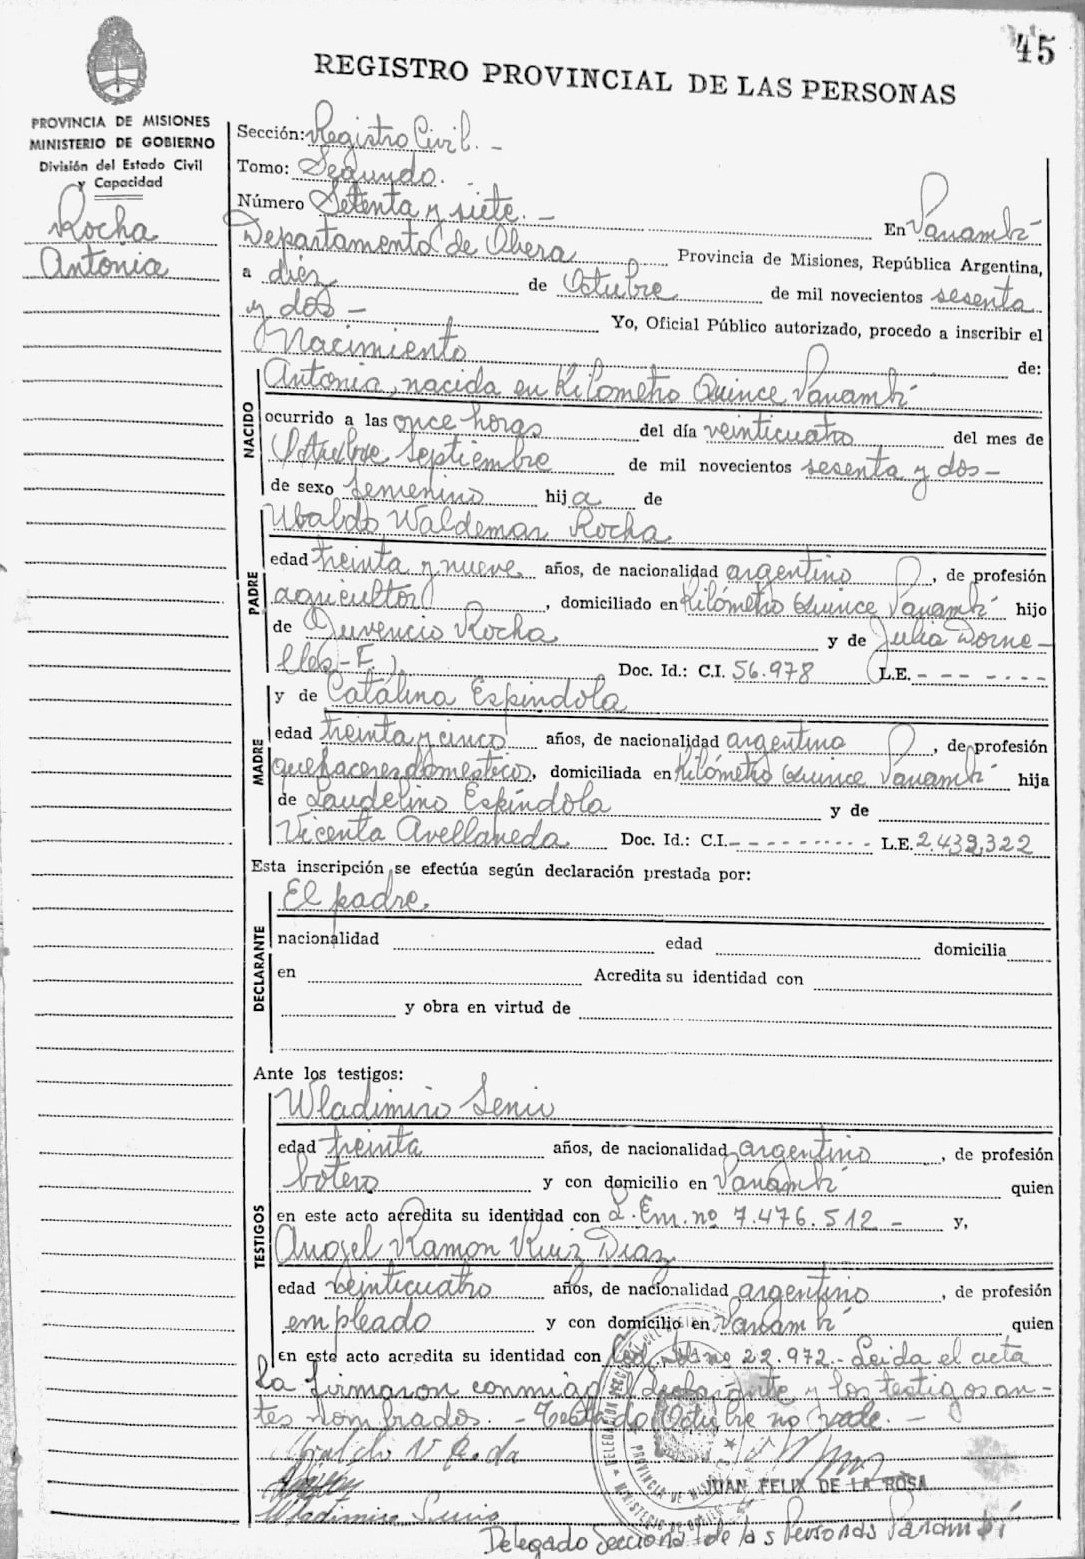 45
REGISTRO PROVINCIAL DE LAS PERSONAS
PROVINCIA DE MISIONES
MINISTERIO DE GOBIERNO
División del Estado Civil
y Capacidad
Rocha
Antonia
Sección: Registro Civil. -
Tomo: Segundo. -
Número Setenta y siete. - En Panambí
Departamento de Oberá Provincia de Misiones, República Argentina,
a diez de Octubre de mil novecientos sesenta
y dos - Yo, Oficial Público autorizado, procedo a inscribir el
Nacimiento de:
NACIDO
Antonia, nacida en Kilómetro Quince Panambí
ocurrido a las once horas del día veinticuatro del mes de
Octubre Septiembre de mil novecientos sesenta y dos -
de sexo femenino hija de
PADRE
Ubaldo Waldemar Rocha
edad treinta y nueve años, de nacionalidad argentino, de profesión
agricultor, domiciliado en Kilómetro Quince Panambí hijo
de Juvencio Rocha y de Julia Dorne-
lles-F.) Doc. Id.: C.I. 56.978 L.E. - - - - - - -
MADRE
y de Catalina Espíndola
edad treinta y cinco años, de nacionalidad argentina, de profesión
quehaceres domésticos, domiciliada en Kilómetro Quince Panambí hija
de Laudelino Espíndola y de
Vicenta Avellaneda Doc. Id.: C.I. - - - - - - - - - L.E. 2.439,322
Esta inscripción se efectúa según declaración prestada por:
DECLARANTE
El padre.
nacionalidad edad domicilia
en Acredita su identidad con
y obra en virtud de
Ante los testigos:
TESTIGOS
Wladimiro Seniv
edad treinta años, de nacionalidad argentino, de profesión
botero y con domicilio en Panambí quien
en este acto acredita su identidad con L. Em. nº 7.476.512 - y,
Angel Ramon Ruiz Diaz
edad veinticuatro años, de nacionalidad argentino, de profesión
empleado y con domicilio en Panambí quien
en este acto acredita su identidad con nº 22.972. - Leida el acta
la firmaron conmigo el declarante y los testigos an-
tes nombrados. - Testado Octubre no vale. -
JUAN FELIX DE LA ROSA
Wladimiro Seniv
Delegado Seccional de las Personas Panambí